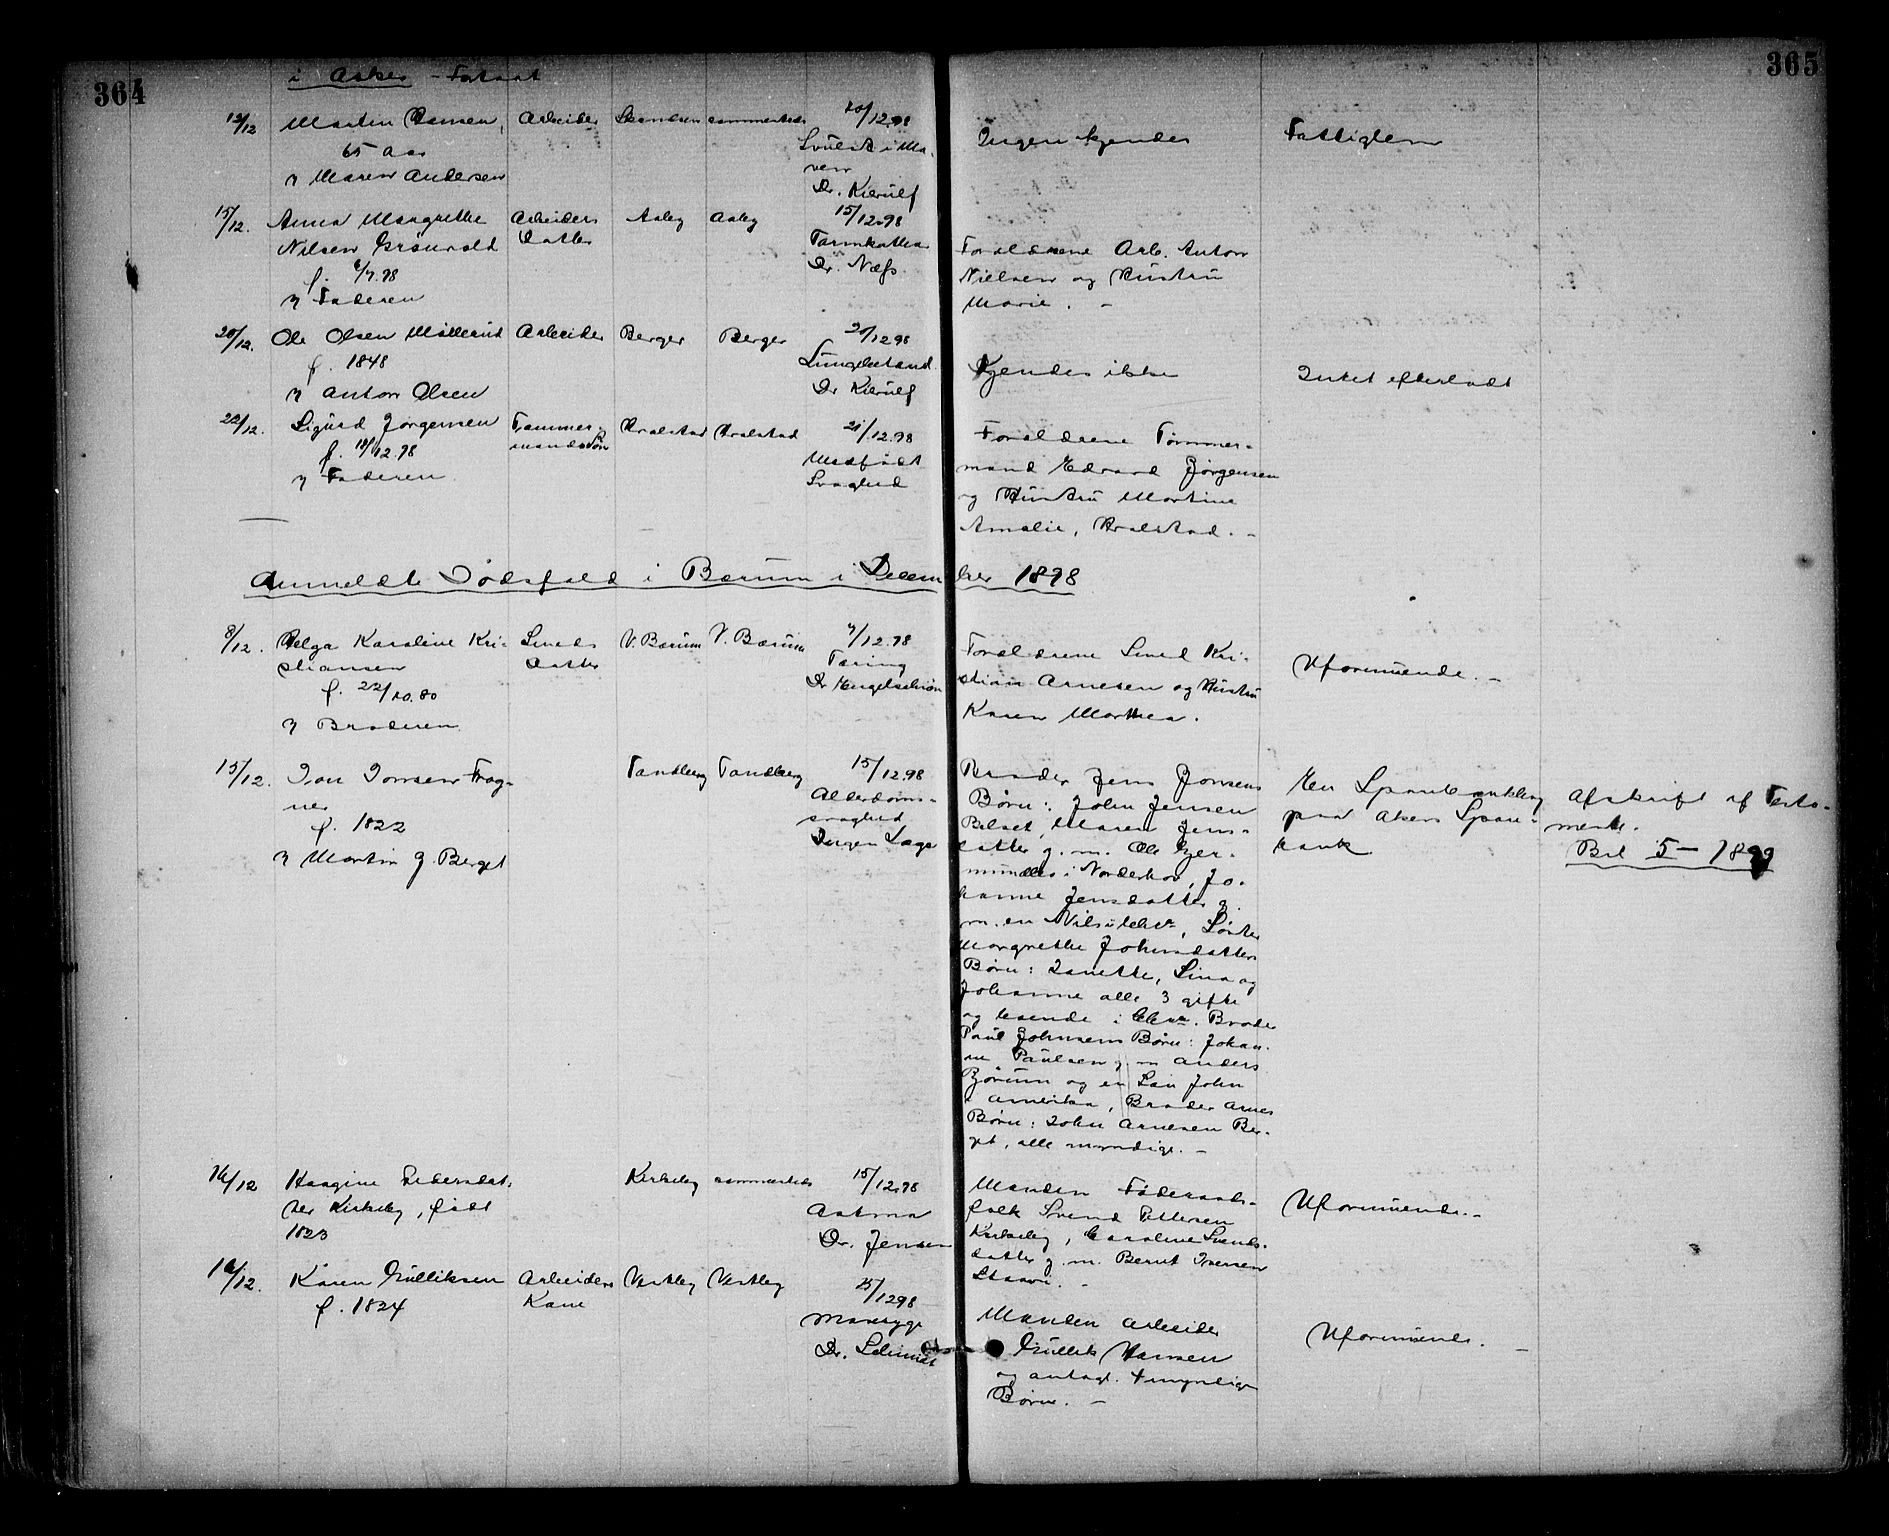 364
365
i Asker - Fortsat
12/12
Martin Hansen,
65 Aar
v Maren Andersen
Arbeider
sammesteds
20/12.98
Svulst i Ma-
ven
Dr. Kierulf
Ingen kjendes
Fattiglem
15/12.
Anna Margrethe
Nilsen Grönvold
f. 6/7.98
v Faderen
Arbeiders
Datter
Asby
Asby
15/12.98
Tarmkathar
Dr. Næss.
Forældrene Arb. Anton
Nielsen og Hustru
Marie. -
20/12.
Ole Olsen Möllerud
f. 1848
v Anton Olsen
Arbeider
Berger
Berger
20/12.98
Lungebetænd.
Dr Kierulf
Kjendes ikke
Intet efterladt
22/12.
Sigurd Jörgensen
f. 18/12.98
v Faderen
Tømmer-
mandssøn
Hvalstad
Hvalstad
21/12.98
Medfødt
Svaghed
Forældrene Tømmer-
mand Edvard Jørgensen
og Hustru Martine
Amalie, Hvalstad. -
Anmeldte Dödsfald i Bærum i December 1898
8/12.
Helga Karoline Kri-
stiansen
f. 22/10.80
v Broderen
Smeds
Datter
V. Bærum
V. Bærum
7/12.98
Tæring
Dr Engelschiøn
Forældrene Smed Kri-
stian Arnesen og Hustru
Karen Marthea.
Uformuende. -
15/12.
Jon Jonsen Frog-
ner
f. 1822
v Martin G. Berget
Tandberg
Tandberg
15/12.98
Alderdoms-
svaghed
Ingen Læge
Broder Jens Jonsens
Børn: John Jensen
Belset, Maren Jens-
datter g. m. Ole Gjer-
mundbo i Norderhov, Jo-
hanne Jensdatter g.
m. en Nils i Chra, Søster
Margrethe Johnsdatters
Børn: Janette, Lina og
Johanne alle 3 gifte
og boende i Chra. Broder
Paul Johnsens Børn: Johan-
ne Paulsen g. m Anders
Bjørum og en Søn John
i Amerika, Broder Arnes
Børn: John Arnesen Ber-
get, alle myndige. -
En Sparebankbog
paa Akers Spare-
bank
Afskrift af Testa-
mente.
Bil 5 - 1899
16/12
Haagine Pedersdat-
ter Kirkeby, født
1823
Kirkeby
sammesteds
15/12.98
Astma
Dr. Jensen
Manden Føderaads-
folk Svend Pettersen
Kirkeby, Caroline Svends-
datter g. m. Bernt Iversen
Staavi. -
Uformuende. -
16/12.
Karen Gulliksen
f. 1824
Arbeiders
Kone
Vestby
Vestby
15/12.98
Mavesyge
Dr. Schmidt
Manden Arbeider
Gullik Hansen
og antagl. 4 myndige
Børn. -
Uformuende. -